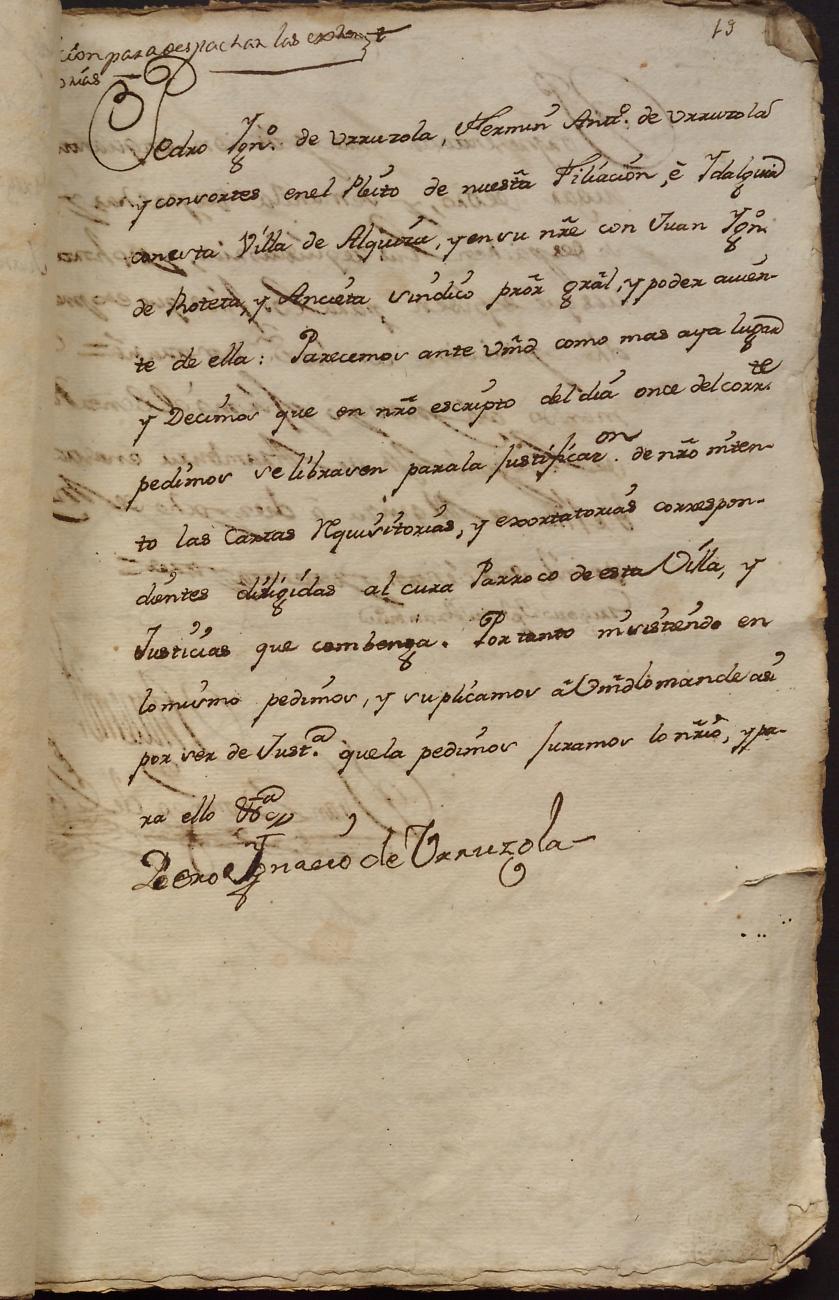 19
cion para despachar las exhort
orias
Pedro Ygnº. de Urruzola, Fermin Antº. de Urruzola
y consortes enel Pleito de nuestra Filiación, è Ydalguia
con esta Villa de Alquiza, y en su nrē con Juan Ygnº.
de Roteta, y Ancieta sindico prōr grāl, y poder avien-
te de ella: Parecemos ante Vmd como mas aya lugar
y Decimos que en nrō escripto del dia once del corrte.
pedimos se librasen para la Justificaron. de nrō inten-
to las Cartas requisitorias, y exortatorias correspon-
dientes dirigidas al cura Parroco de esta Villa, y
Justicias que combenga. Por tanto insistiendo en
lo mismo pedimos, y suplicamos a Vmd lo mande asi
por ser de Justa. que la pedimos Juramos lo nrīō, y pa-
ra ello &a
Pedro Ignacio de Urruzola